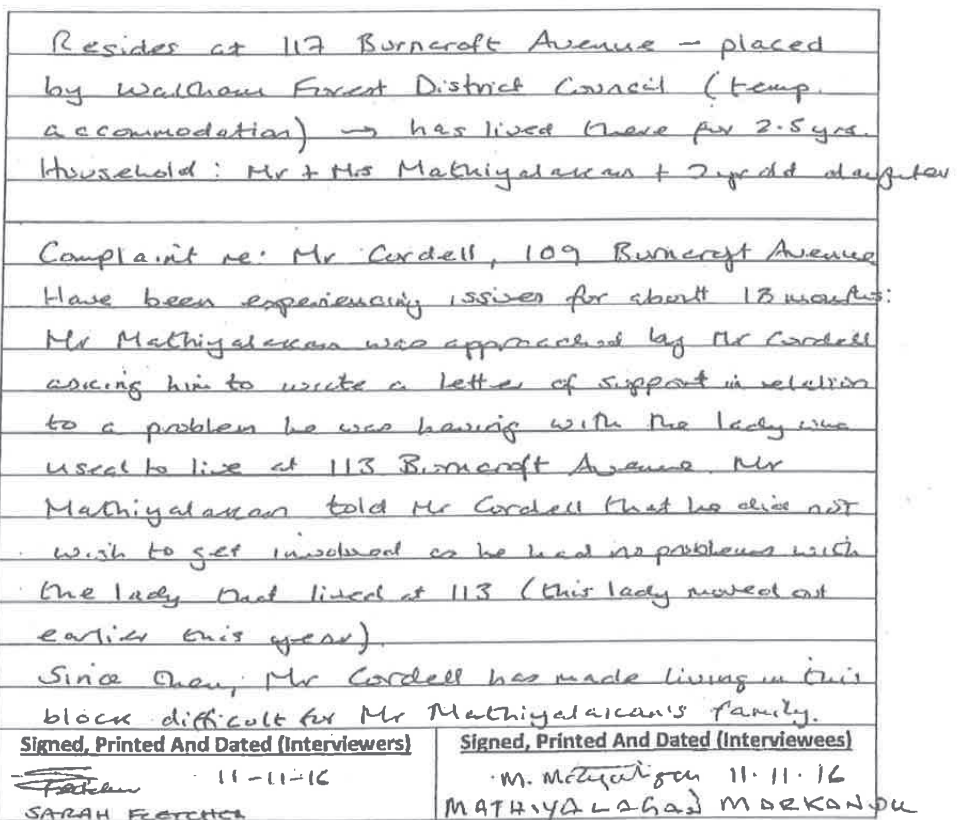 Resides at 117 Burncroft Avenue – placed
by Waltham Forest District Council (temp.
accommodation) → has lived there for 2.5 yrs.
Household: Mr + Mrs Mathiyalakan + 2 yr old daughter
Complaint re: Mr Cordell, 109 Burncroft Avenue
Have been experiencing issues for about 18 months:
Mr Mathiyalakan was approached by Mr Cordell
asking him to write a letter of support in relation
to a problem he was having with the lady who
used to live at 113 Burncroft Avenue. Mr
Mathiyalakan told Mr Cordell that he did not
wish to get involved as he had no problems with
the lady that lived at 113 (this lady moved out
earlier this year).
Since then, Mr Cordell has made living in this
block difficult for Mr Mathiyalakan's family.
Signed, Printed And Dated (Interviewers)
Fletcher 11-11-16
SARAH FLETCHER
Signed, Printed And Dated (Interviewees)
11.11.16
MATHIYALAGAN MARKANDU